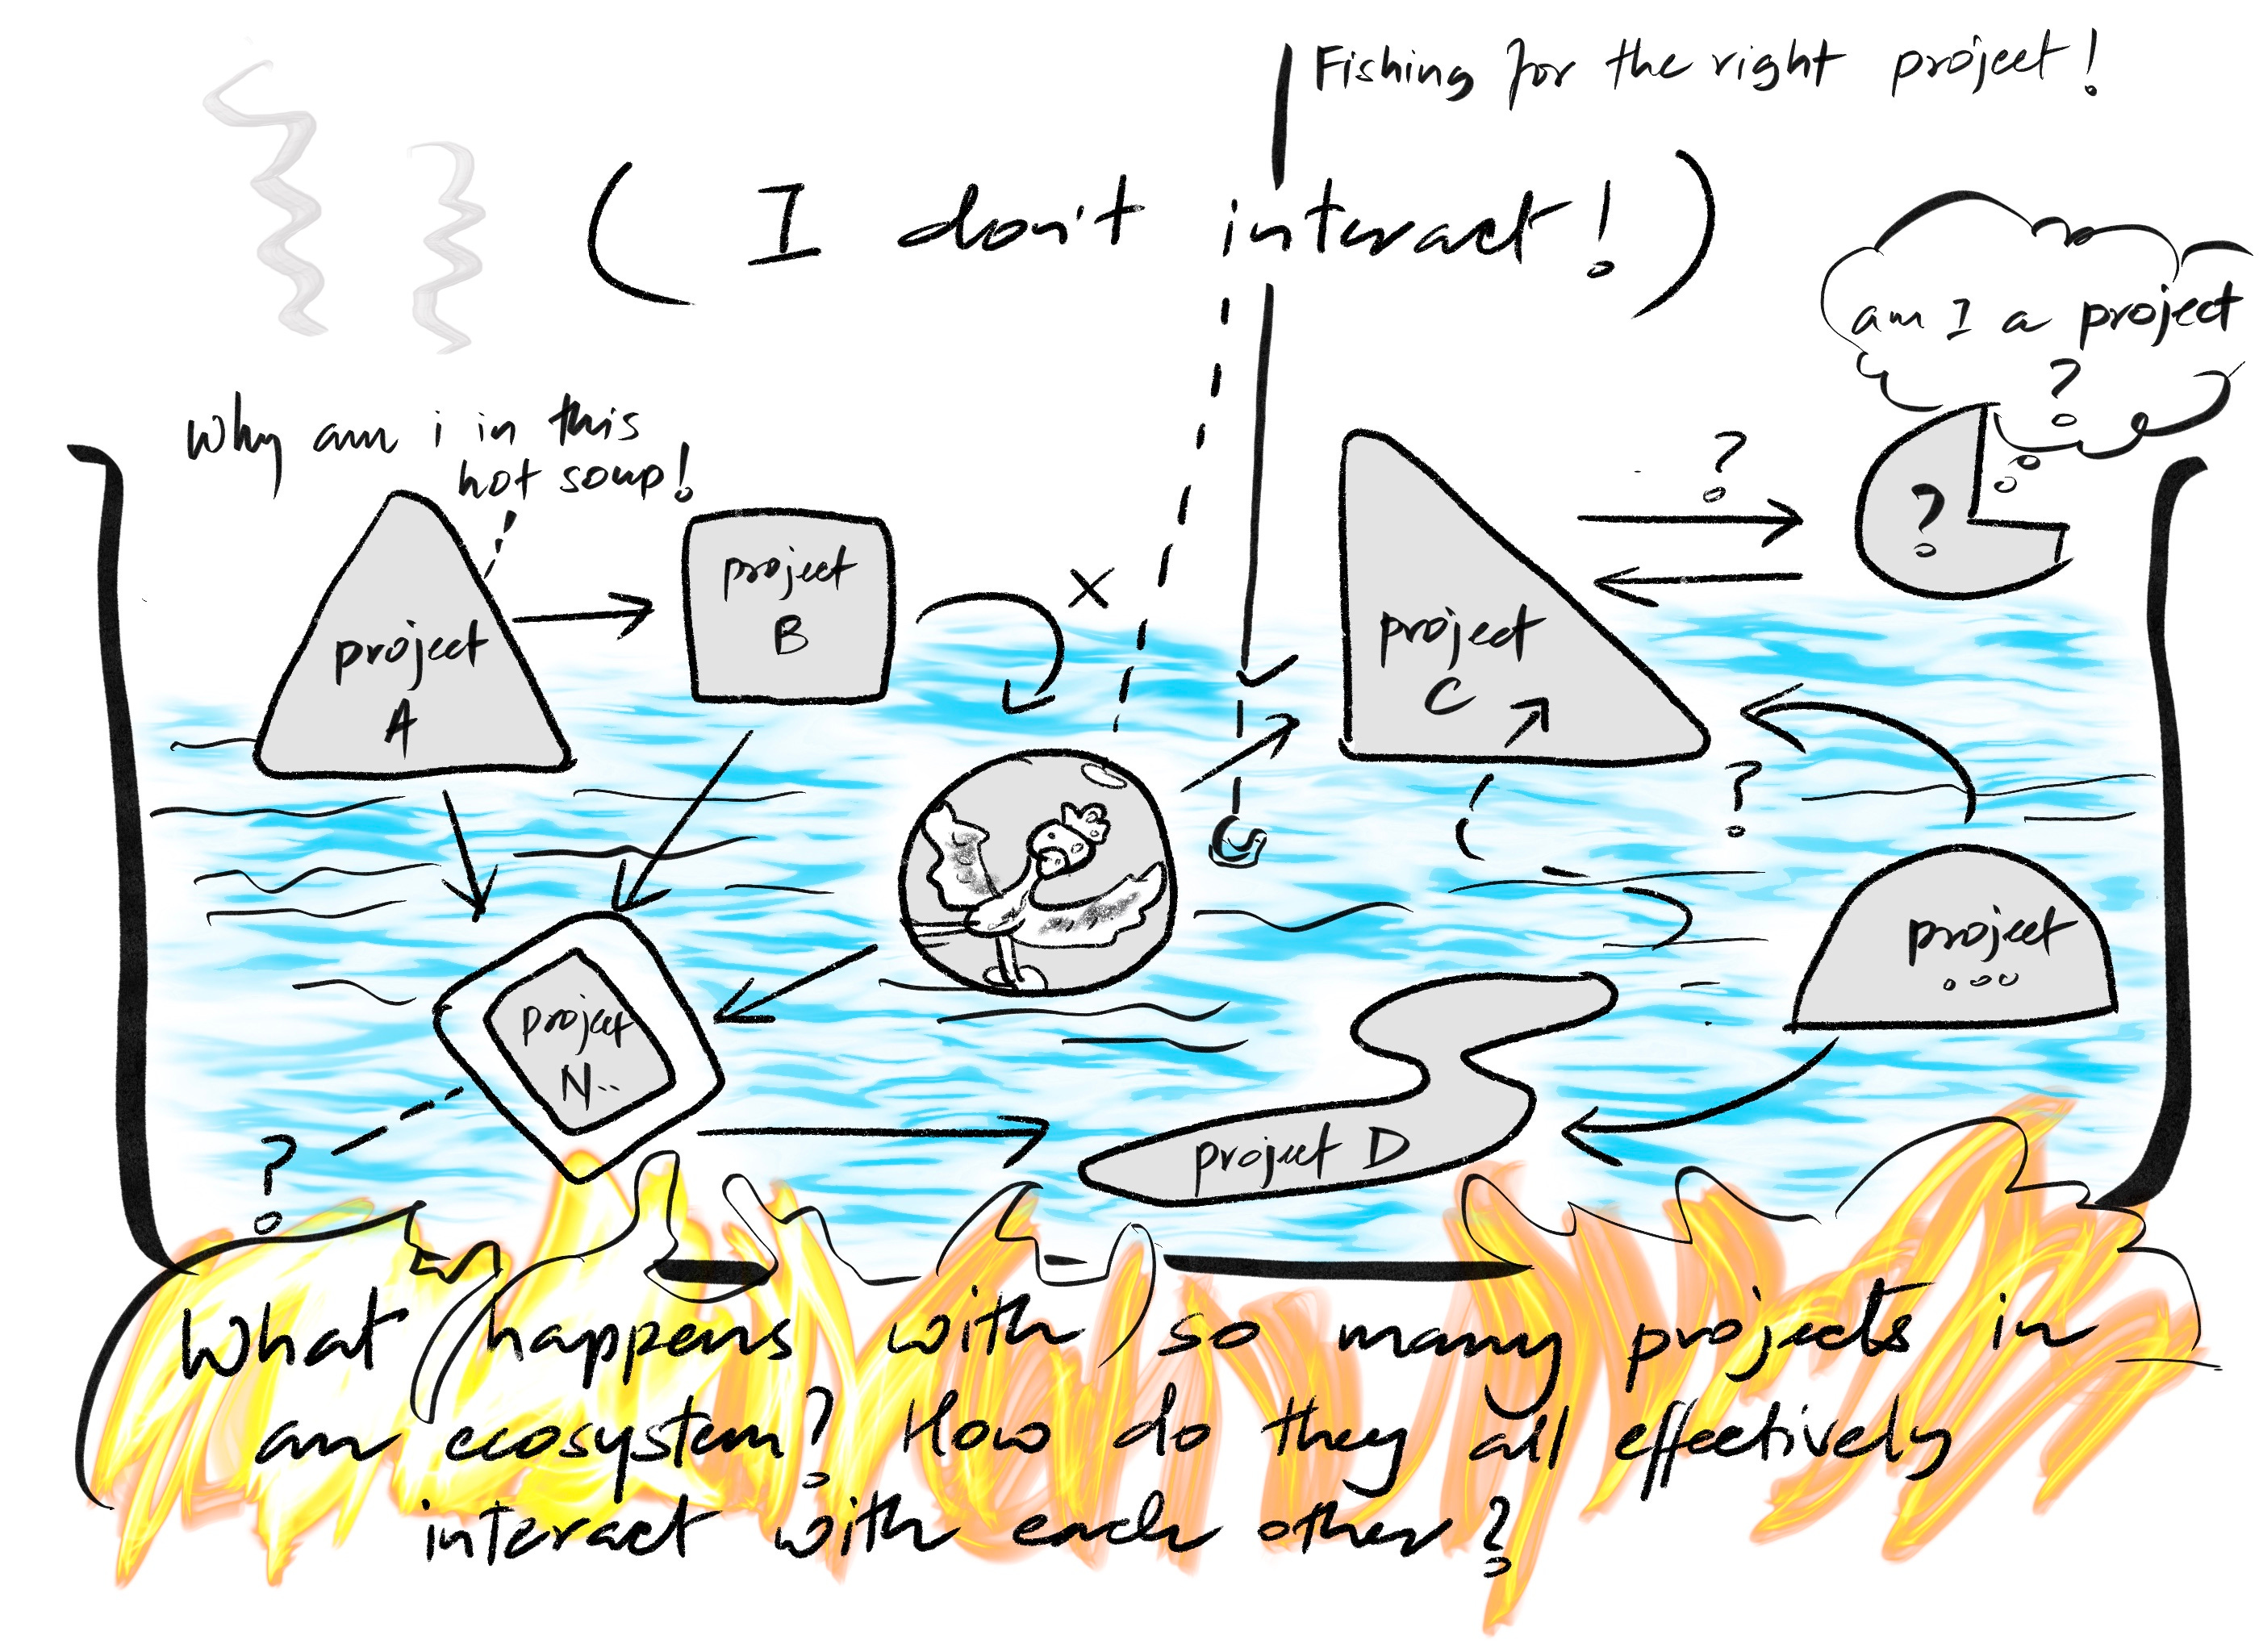 Fishing for the right project!
( I don't interact! )
am I a project
?
Why am i in this
hot soup!
?
?
project
B
x
project
A
project
C
?
project
...
project
N..
?
project D
What happens with so many projects in
an ecosystem? How do they all effectively
interact with each other?